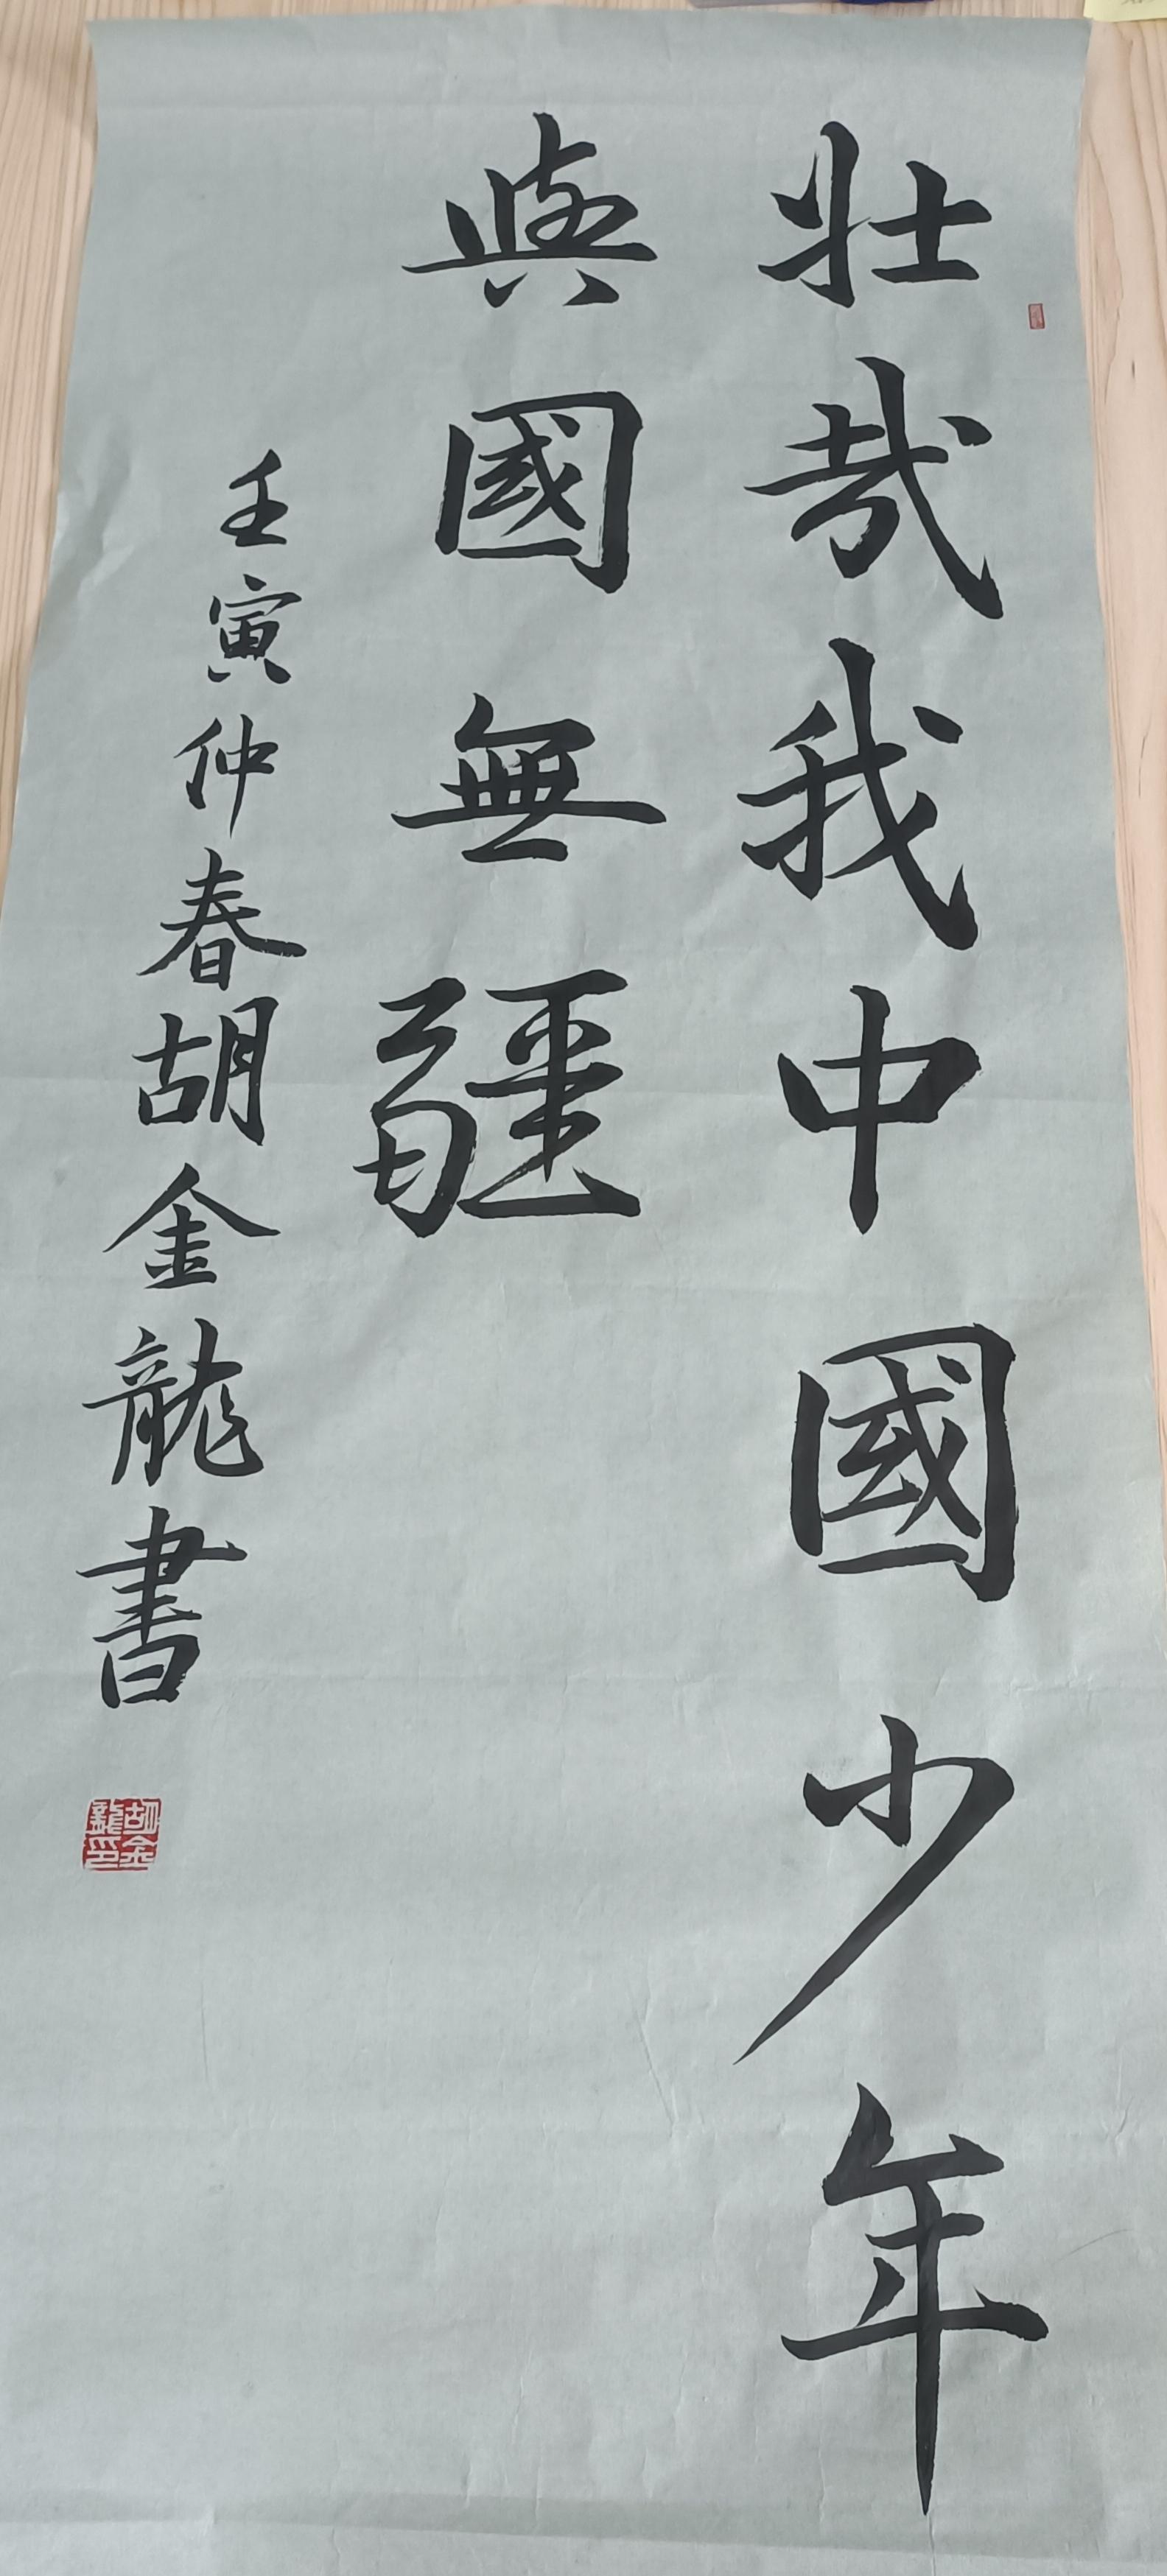 壯哉我中國少年
與國無疆
壬寅仲春胡金龍書
胡金龍印